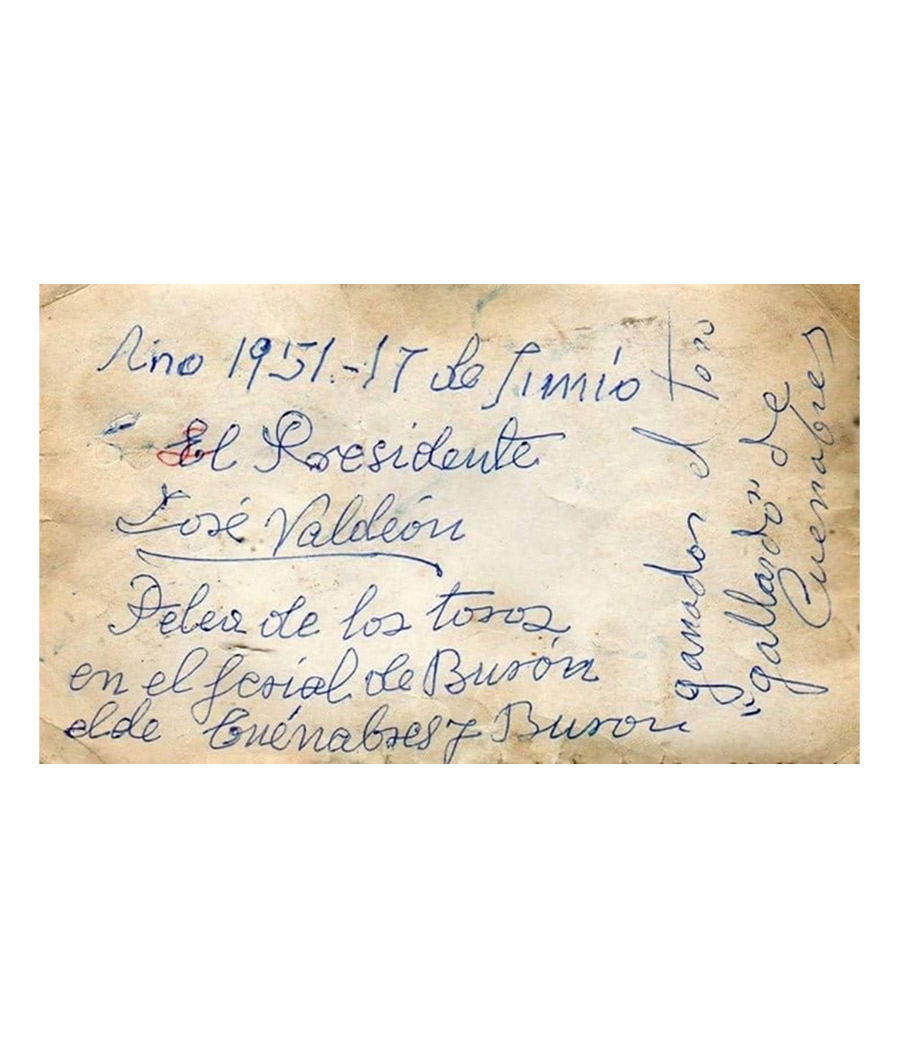 Año 1951.-17 de Junio
El Presidente
José Valdeón
Pelea de los toros
en el ferial de Burón
el de Cuénabres y Buron
ganador el toro
"gallardo" de
Cuenabres